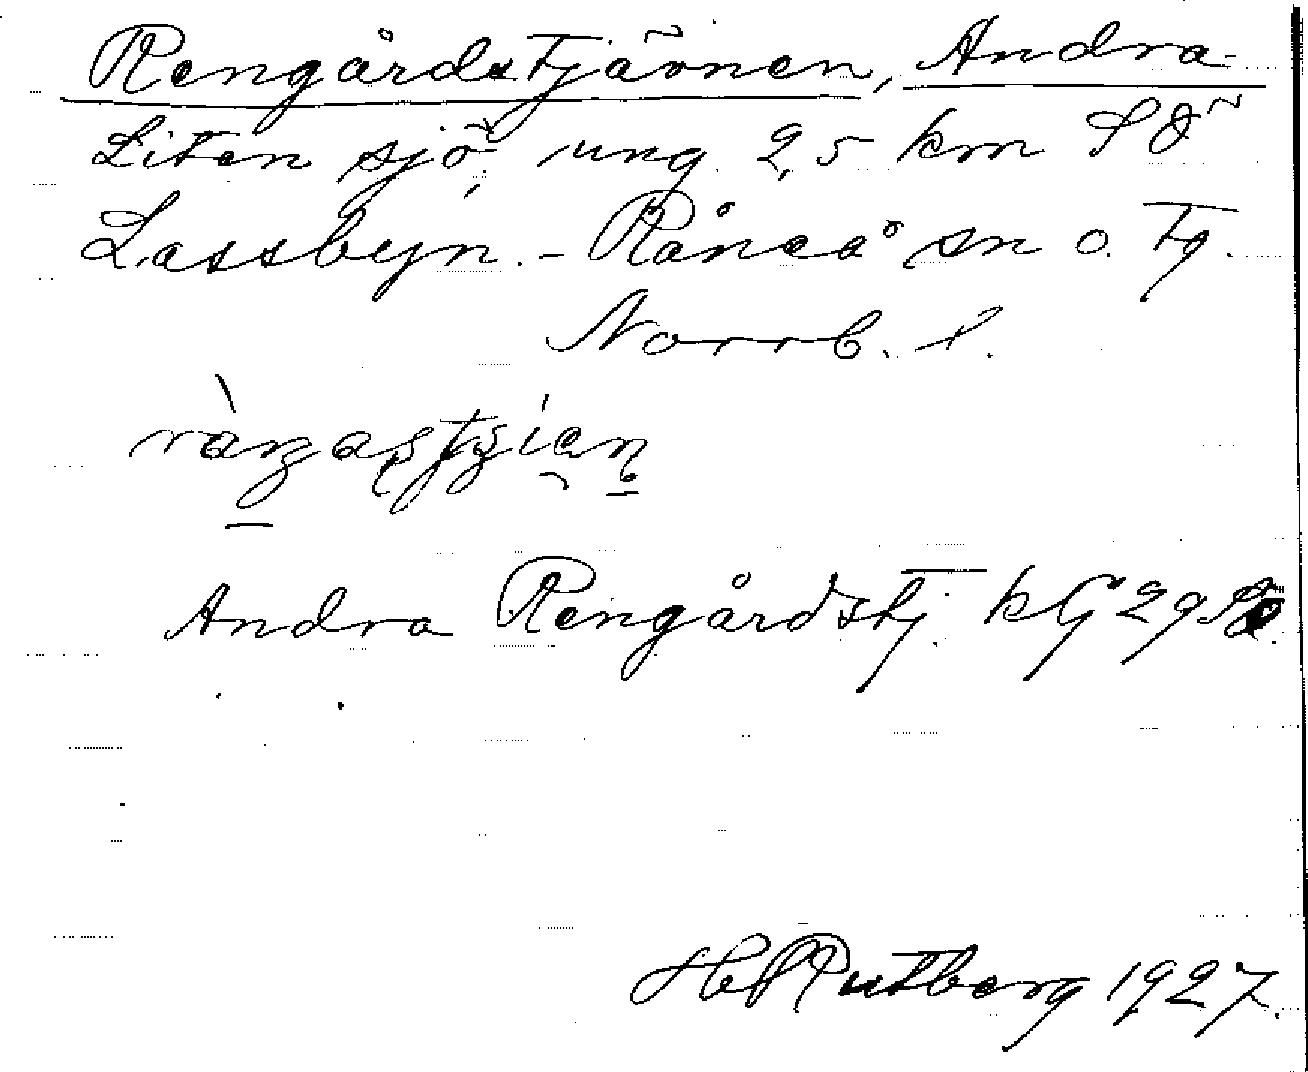 Rengårdstjärnen, Andra
Liten sjö, ung. 2,5 km SÖ
Lassbyn. - Råneå sn o. tg.
Norrb. l.
Andra Rengårdstj. kG 29
Hf Rutberg 1927.